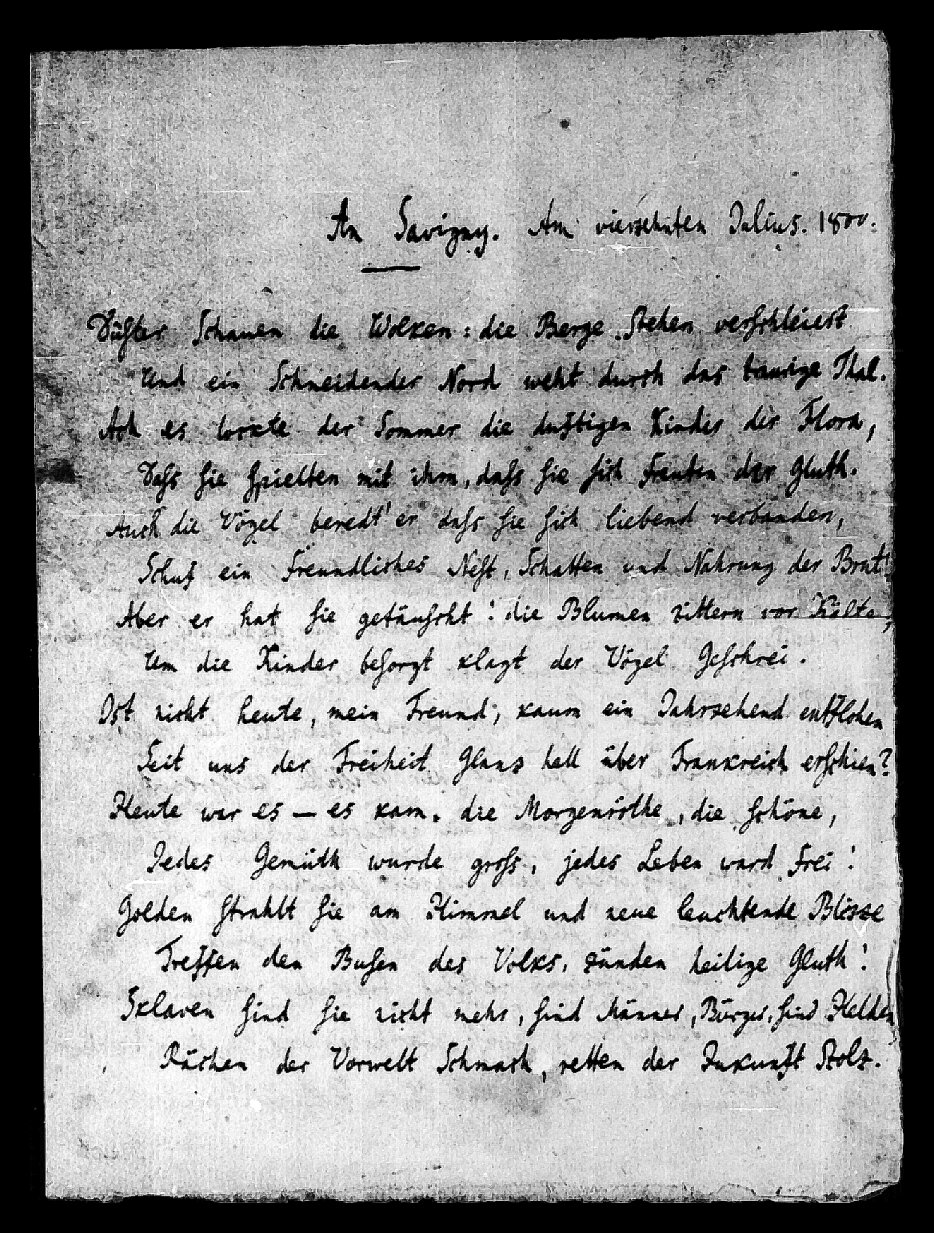 An Savigny. Am vierzehnten Julius. 1800.
Düster schauen die Wolken: die Berge stehen verschleiert
Und ein schneidender Nord weht durch das traurige Thal.
Ach es lockte der Sommer die duftigen Kinder der Flora,
Dass sie spielten mit ihm, dass sie sich trauten der Gluth.
Auch die Vögel beredt' er dass sie sich liebend verbanden,
Schuf ein freundliches Nest, Schatten und Nahrung der Brut!
Aber er hat sie getäuscht: die Blumen zittern vor Kälte,
Um die Kinder besorgt klagt der Vögel Geschrei.
Ist nicht heute, mein Freund, kaum ein Jahrzehend entflohen
Seit uns der Freiheit Glanz hell über Frankreich erschien?
Heute war es — es kam. die Morgenröthe, die schöne,
Jedes Gemüth wurde gross, jedes Leben ward frei!
Golden strahlt sie am Himmel und neue leuchtende Blizze
Treffen den Busen des Volks, zünden heilige Gluth!
Sklaven sind sie nicht mehr, sind Männer, Bürger, sind Helden
Rächen der Vorwelt Schmach, retten der Zukunft Stolz.